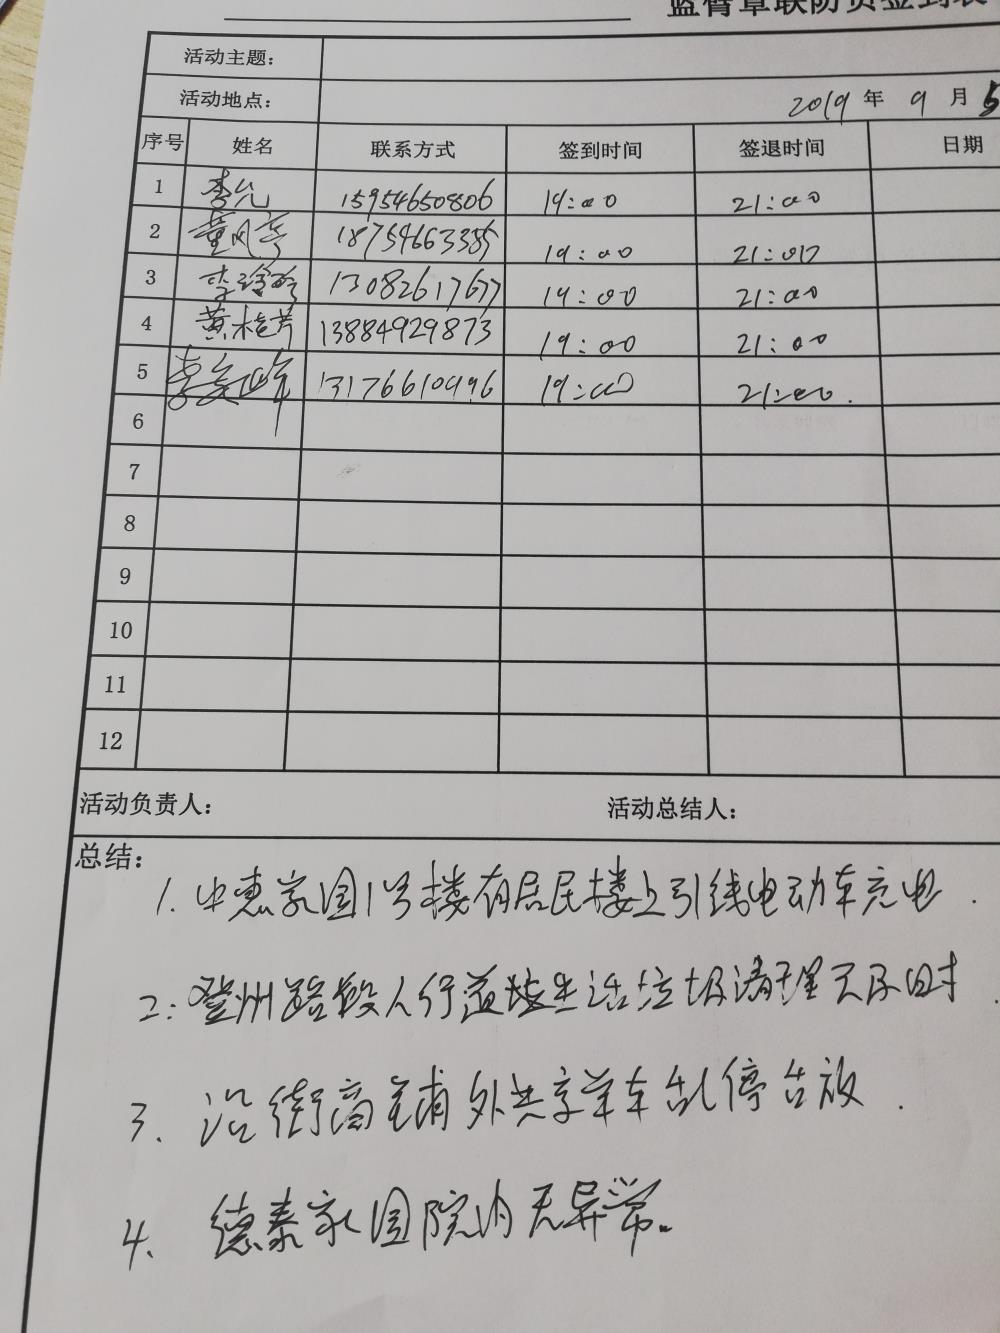 蓝臂章联防员签到表
活动主题：
活动地点： 2019 年 9 月 5
序号 姓名 联系方式 签到时间 签退时间 日期
1 李允 15954650806 19:00 21:00
2 18754663385 19:00 21:00
3 13082617677 19:00 21:00
4 黄桂芳 13884929873 19:00 21:00
5 13176610996 19:00 21:00.
6
7
8
9
10
11
12
活动负责人： 活动总结人：
总结：
1. 中惠家园1号楼有居民楼上引线电动车充电.
2: 登州路段人行道垃生活垃圾清理不及时.
3. 沿街商铺外共享单车乱停乱放.
4. 德泰家园院内无异常。